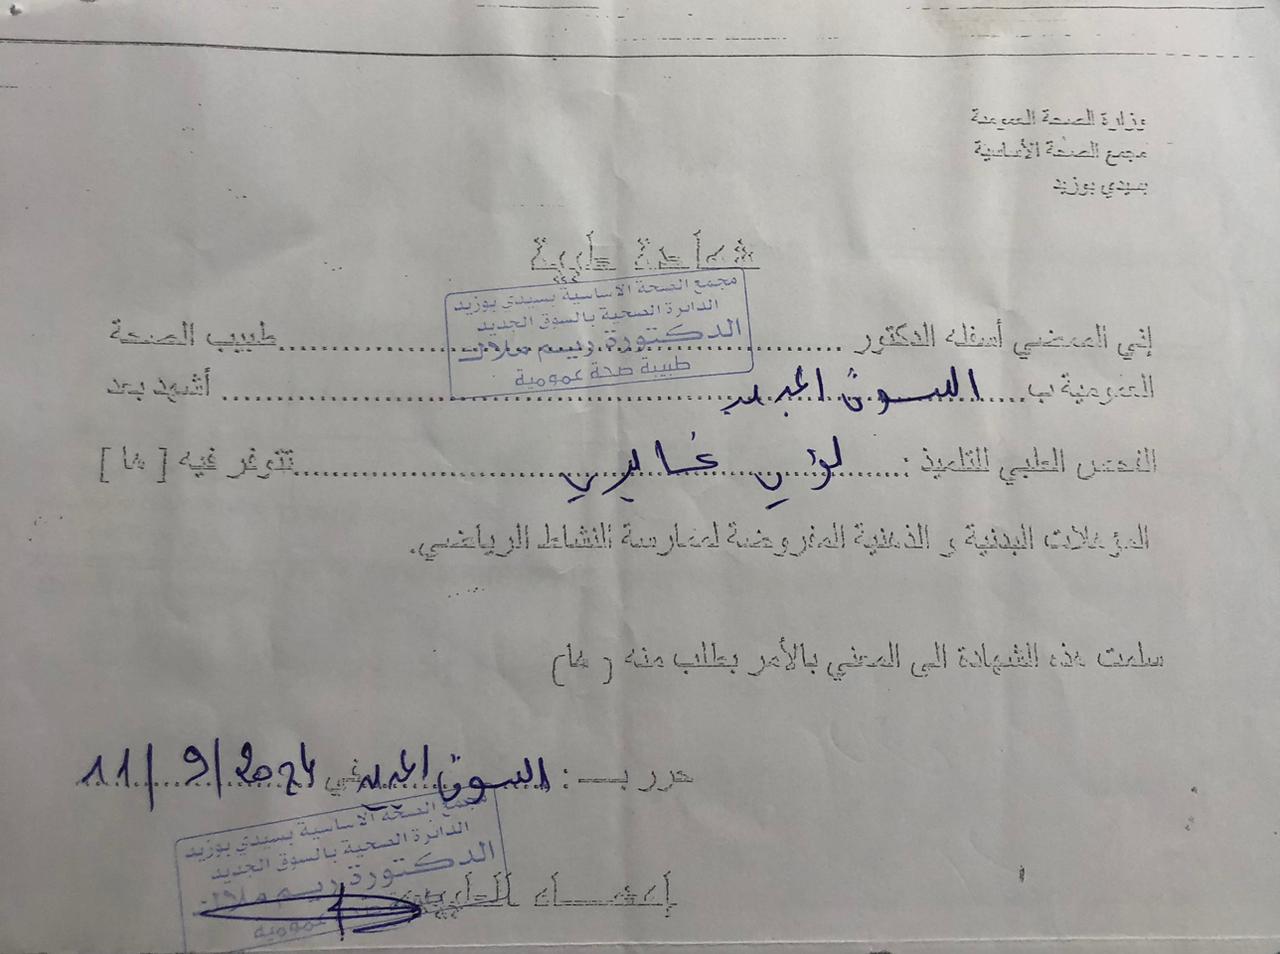 وزارة الصحة العمومية
مجمع الصحة الأساسية
بسيدي بوزيد
شهادة طبية
مجمع الصحة الأساسية بسيدي بوزيد
الدائرة الصحية بالسوق الجديد
الدكتورة ريم ملاك
طبيبة صحة عمومية
إني الممضي أسفله الدكتور ........ طبيب الصحة
العمومية ب.... السوق الجديد ........ أشهد بعد
الفحص الطبي للتلميذ : ..... لؤي ........ تتوفر فيه [ ها ]
المؤهلات البدنية و الذهنية المفروضة لممارسة النشاط الرياضي.
سلمت هذه الشهادة الى المعني بالأمر بطلب منه ( ها)
حرر بـ : السوق الجديد في 11/9/2024
مجمع الصحة الأساسية بسيدي بوزيد
الدائرة الصحية بالسوق الجديد
الدكتورة ريم ملاك
عمومية
إمضاء الطبيب